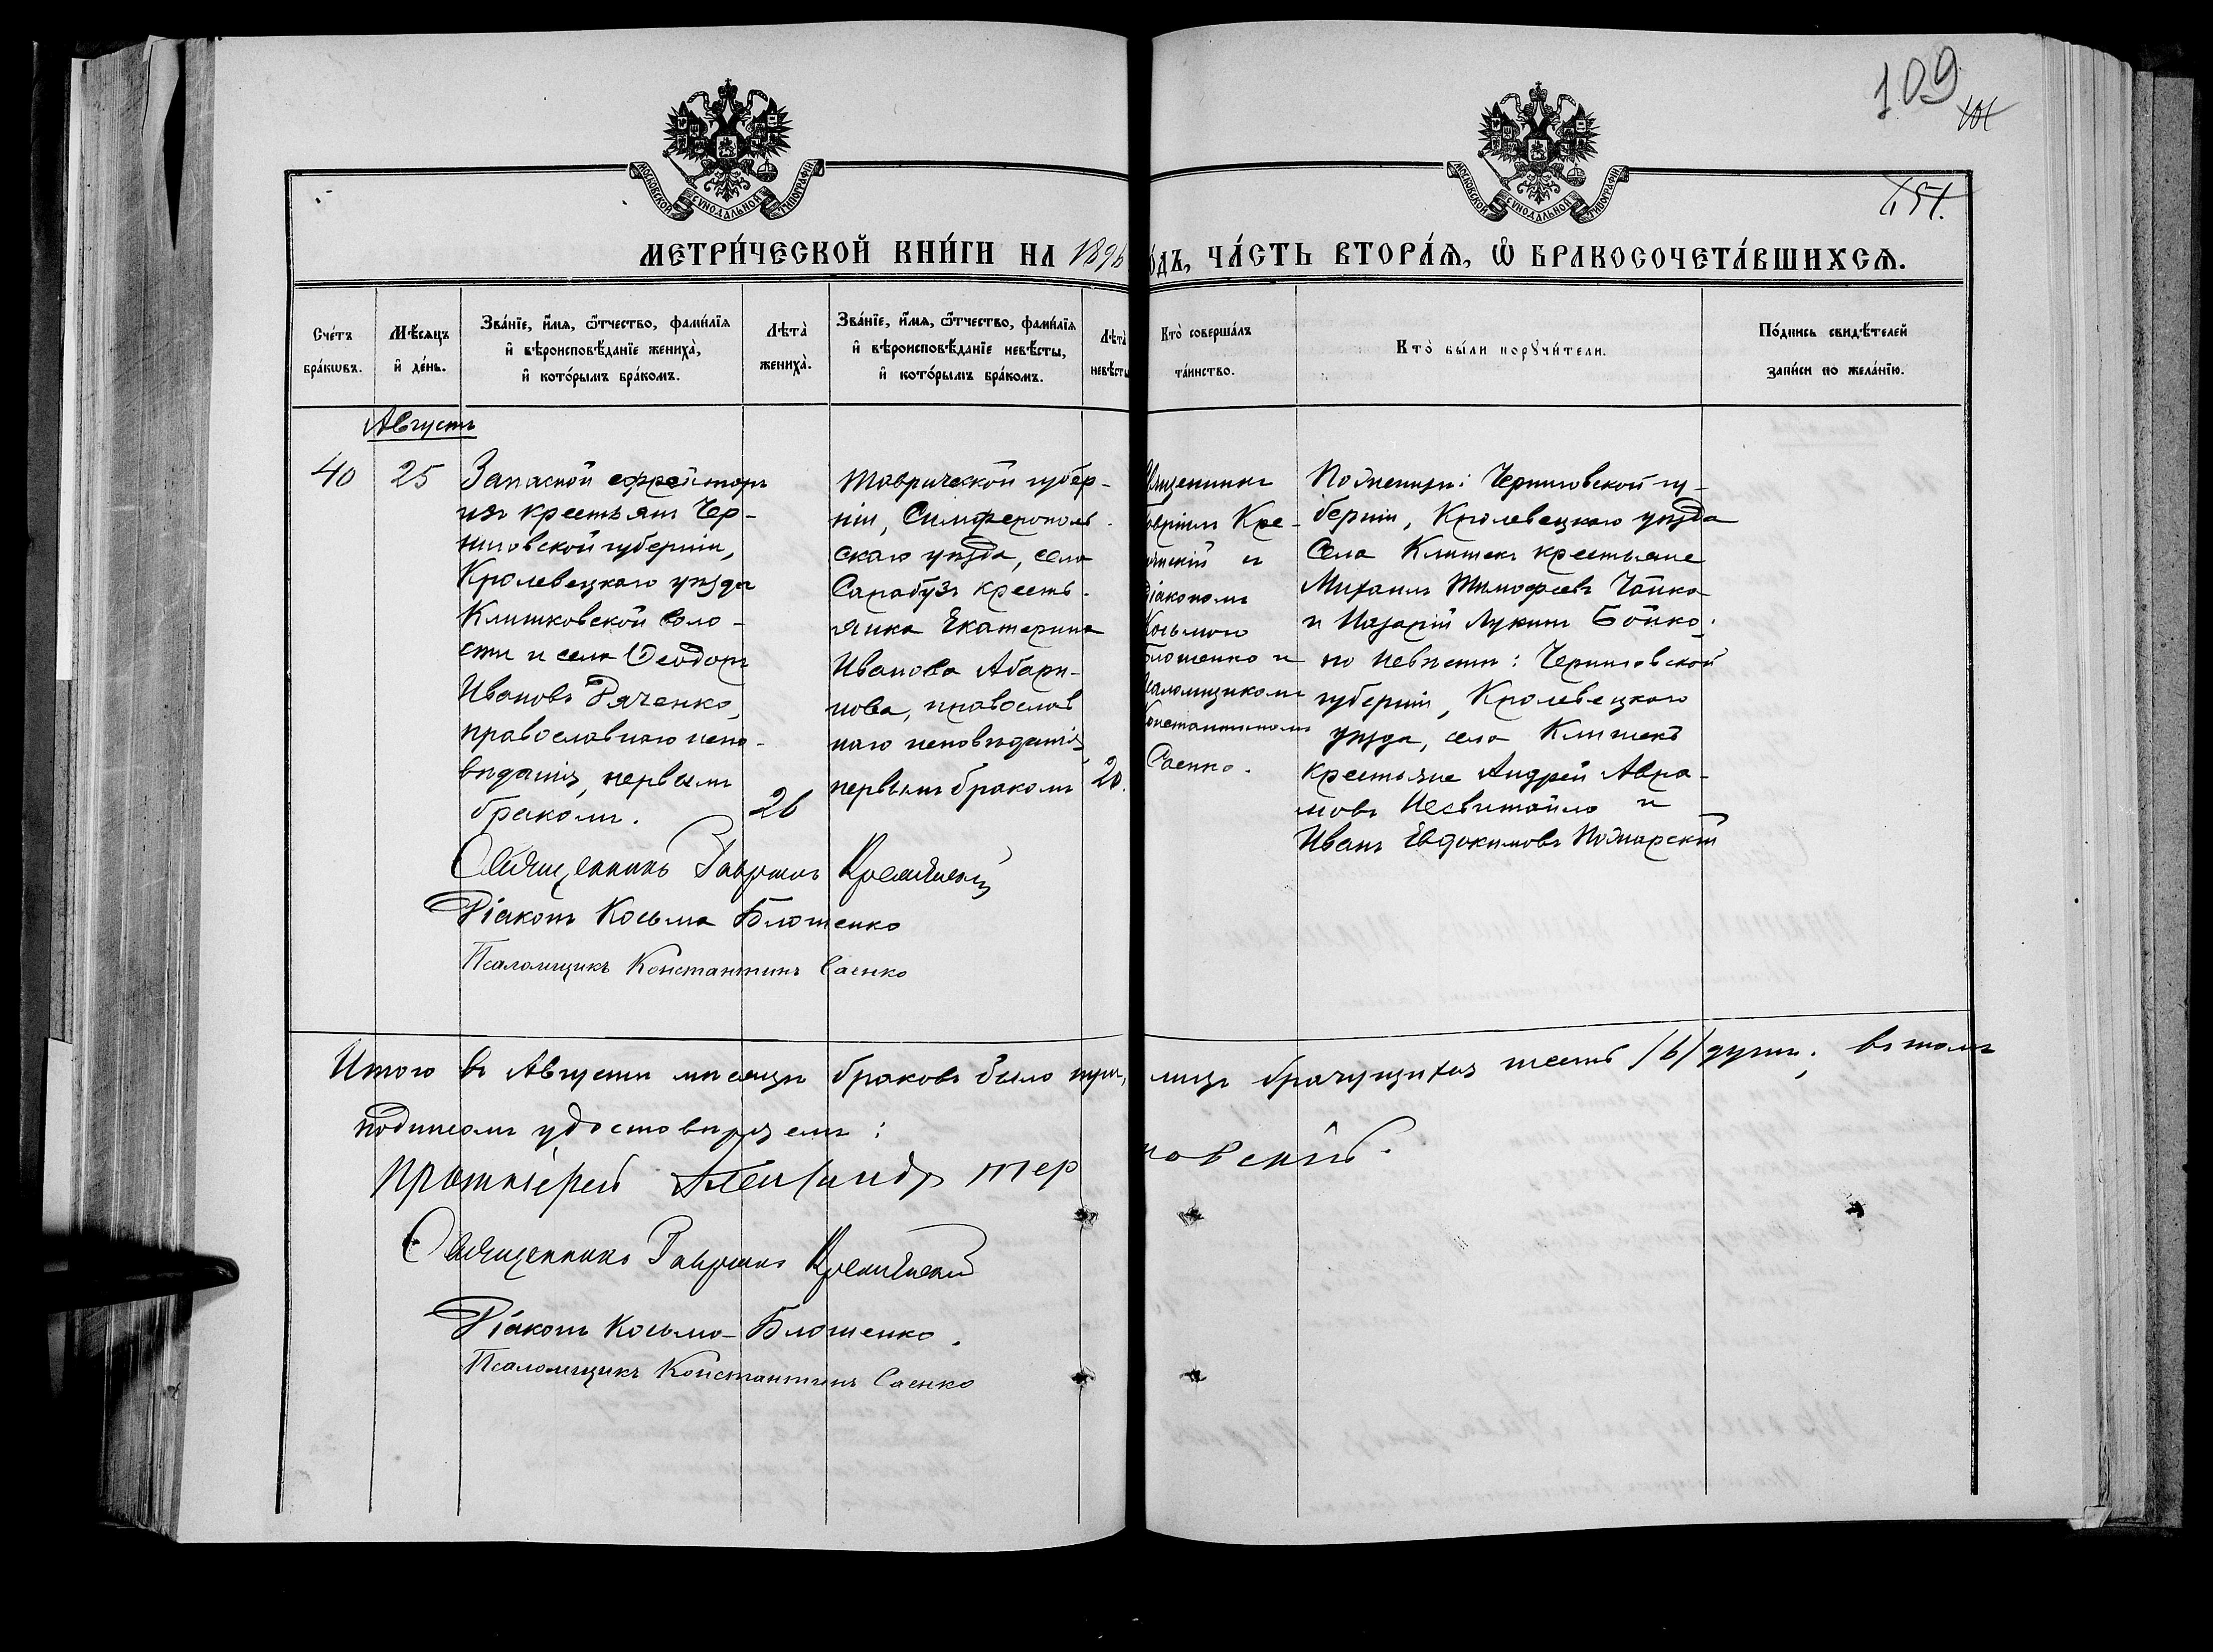 109
151.
МОСКОВСКОЙ СУНОДАЛЬНОЙ ТИПОГРАФІИ
МОСКОВСКОЙ СУНОДАЛЬНОЙ ТИПОГРАФІИ
МЕТРИ́ЧЕСКОЙ КНИ́ГИ НА 1896
О́ДЪ, ЧА́СТЬ ВТОРА́Ѧ, Ѽ БРАКОСОЧЕТА́ВШИХСѦ.
Сче́тъ бра́кѡвъ.
Мѣ́сяцъ и҆ де́нь.
Зва́нїе, и҆́мѧ, ѻ҆́тчество, фами́лїѧ
и҆ вѣроисповѣ́данїе жениха̀,
и҆ кото́рымъ бра́комъ.
Лѣта̀ жениха̀.
Зва́нїе, и҆́мѧ, ѻ҆́тчество, фами́лїѧ
и҆ вѣроисповѣ́данїе невѣ́сты,
и҆ кото́рымъ бра́комъ.
Лѣта̀ невѣ́сты
Кто̀ соверша́лъ
та́инство.
Кто̀ бы́ли порꙋчи́тели.
По́дпись свидѣ́телей
за́писи по жела́нїю.
Августъ
40
25
Запасной ефрейторъ
изъ крестьянъ Чер-
ниговской губерніи,
Кролевецкаго уѣзда
Клишковской воло-
сти и села Ѳеодоръ
Ивановъ Дяченко,
православнаго испо-
вѣданія, первымъ
бракомъ.
26
Таврической губер-
ніи, Симферополь-
скаго уѣзда, села
Сарабузъ кресть-
янка Екатерина
Иванова Абари-
нова, православ
наго исповѣданія,
первымъ бракомъ
20.
Священникъ
Гавріилъ Кре-
скій съ
діакономъ
Косьмою
Блошенко и
псаломщикомъ
Константиномъ
Саенко.
По женихѣ: Черниговской гу-
берніи, Кролевецкаго уѣзда
Села Клишекъ крестьяне
Михаилъ Тимофеевъ Чайка
и Назарій Лукинъ Бойко;
по невѣстѣ: Черниговской
губерніи, Кролевецкаго
уѣзда, села Клишекъ
крестьяне Андрей Авра-
мовъ Несвитайло и
Иванъ Евдокимовъ Пожарскій
Священникъ Гавріилъ
Діаконъ Косьма Блошенко
Псаломщикъ Константинъ Саенко
Итого въ Августѣ мѣсяцѣ браковъ было три,
лицъ брачущихся шесть /6/ душъ; въ томъ
подписомъ удостовѣряемъ:
Протоіерей Александръ Тер
новскій.
Священникъ Гавріилъ
Діаконъ Косьма Блошенко.
Псаломщикъ Константинъ Саенко